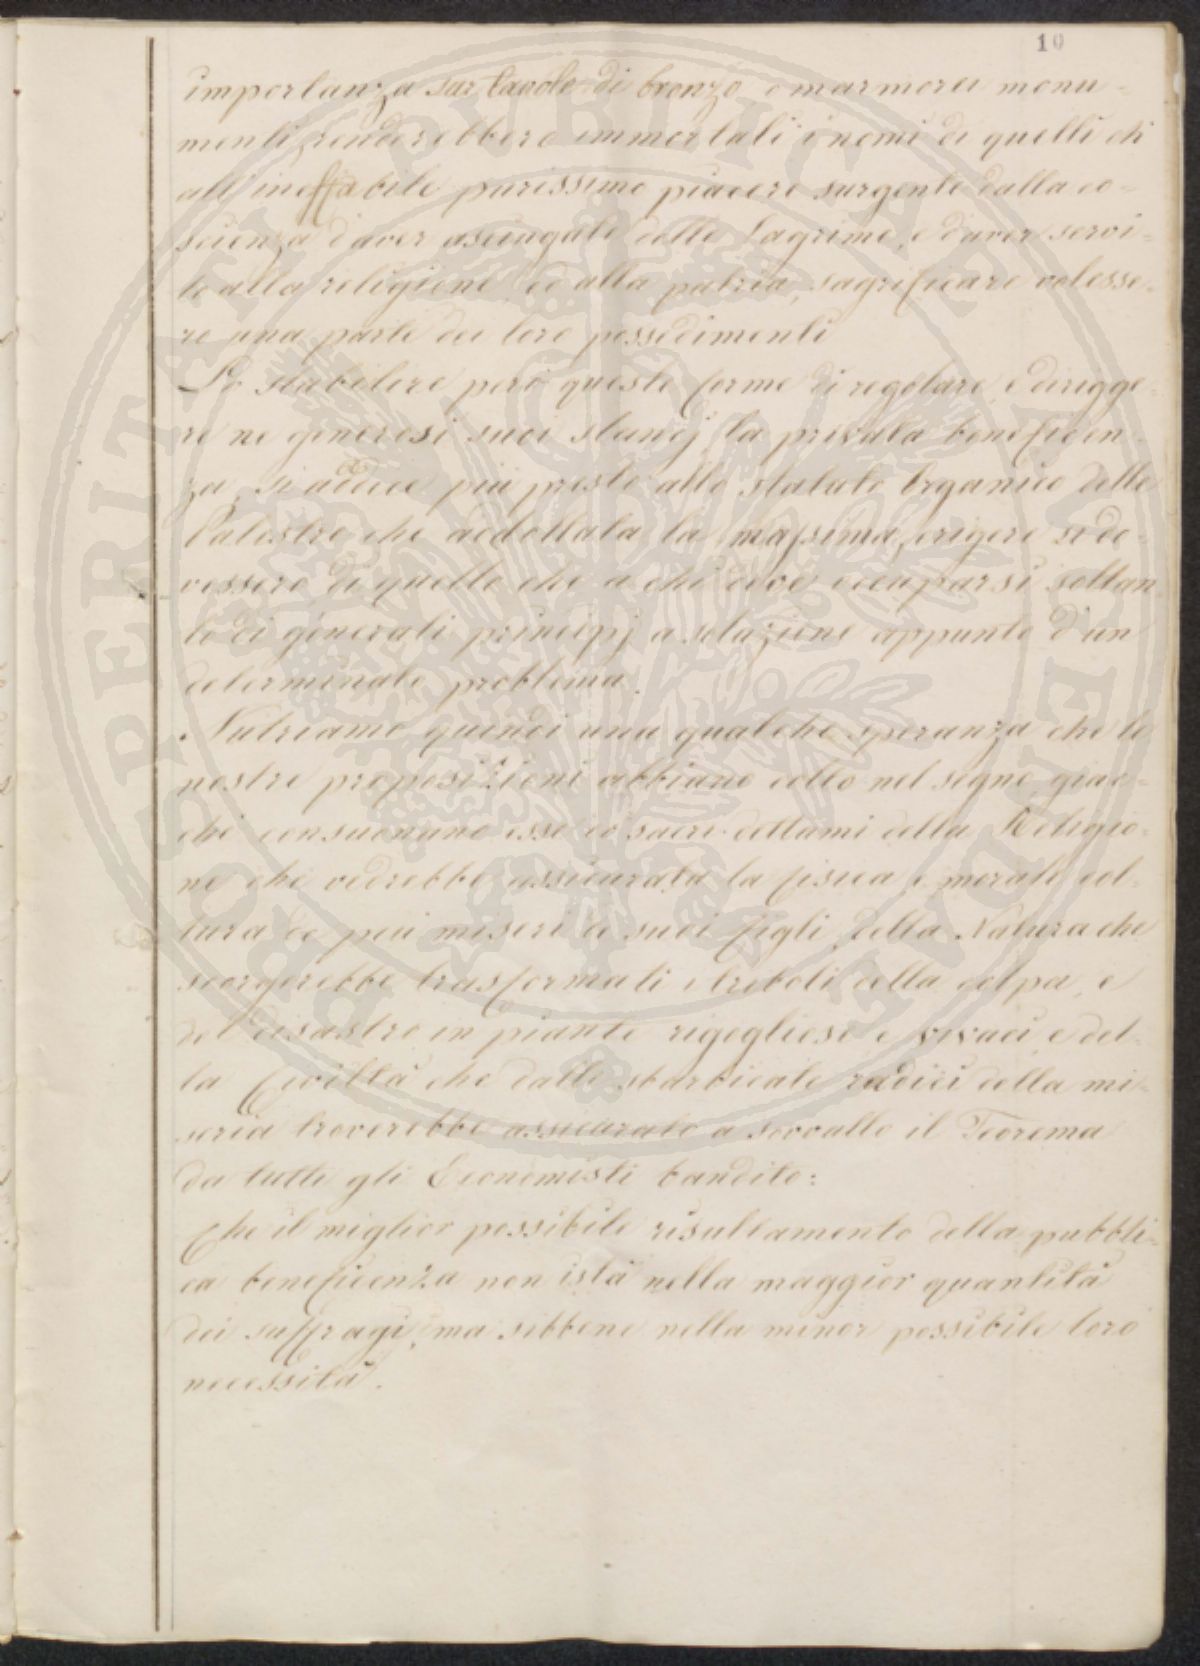 10
importanza sur tavole di bronzo o marmorei monu-
menti renderebbero immortali i nomi di quelli ch
all'ineffabile purissimo piacere surgente dalla co-
scienza d'aver asciugate delle lagrime, e d'aver servi-
to alla religione ed alla patria, sagrificare volesse-
ro una parte dei loro possedimenti
Lo stabilire però queste forme di regolare, e dirigge-
re ne generosi suoi slancj la privata beneficen-
za, si addice più presto allo statuto organico delle
Palestre che addottata la massima, erigere si do-
vessero, di quello che a chi deve occuparsi soltan
to di generali principj a soluzione appunto d'un
determinato problema.
Nutriamo quindi una qualche speranza che le
nostre proposizioni abbiano colto nel segno giac-
chè consuonano esse co' sacri dettami della Religio-
ne che vedrebbe assicurata la fisica e morale col-
tura de più miseri de suoi figli, della Natura che
scorgerebbe trasformati i triboli della colpa, e
del disastro in piante rigogliose e vivaci e del-
la Civiltà che dalle sbarbicate radici della mi-
seria troverebbe assicurato a sovvallo il Teorema
da tutti gli Economisti bandito:
Che il miglior possibile risultamento della pubbli-
ca beneficenza non istà nella maggior quantità
dei suffragi, ma sibbene nella minor possibile loro
necessità.
PROSPERITATI PUBLICAE AUGENDAE